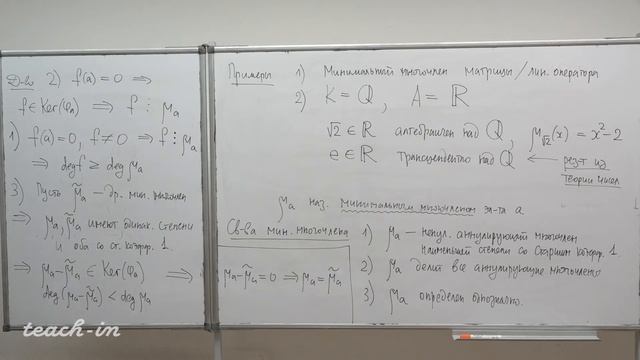 Д-во 2) f(a) = 0 ⟹
f ∈ Ker(φₐ) ⟹ f ⋮ μₐ
1) f(a) = 0, f ≠ 0 ⟹ f ⋮ μₐ
⟹ deg f ≥ deg μₐ
3) Пусть μ̃ₐ – др. мин. многочлен
⟹ μₐ, μ̃ₐ имеют одинак. степени
и оба со ст. коэфф. 1.
⟹ μₐ - μ̃ₐ ∈ Ker(φₐ) ⟹
deg(μₐ - μ̃ₐ) < deg μₐ
Примеры 1) Минимальный многочлен матрицы / лин. оператора
2) K = ℚ, A = ℝ
√2 ∈ ℝ алгебраичен над ℚ, μ_√2(x) = x² - 2
e ∈ ℝ трансцендентно над ℚ ← рез-т из
теории чисел
μₐ наз. минимальным многочленом эл-та a.
Св-ва мин. многочлена
1) μₐ – ненул. аннулирующий многочлен
наименьшей степени со старшим коэфф. 1.
2) μₐ делит все аннулирующие многочлены
3) μₐ определен однозначно.
μₐ - μ̃ₐ = 0 ⟹ μₐ = μ̃ₐ
teach-in